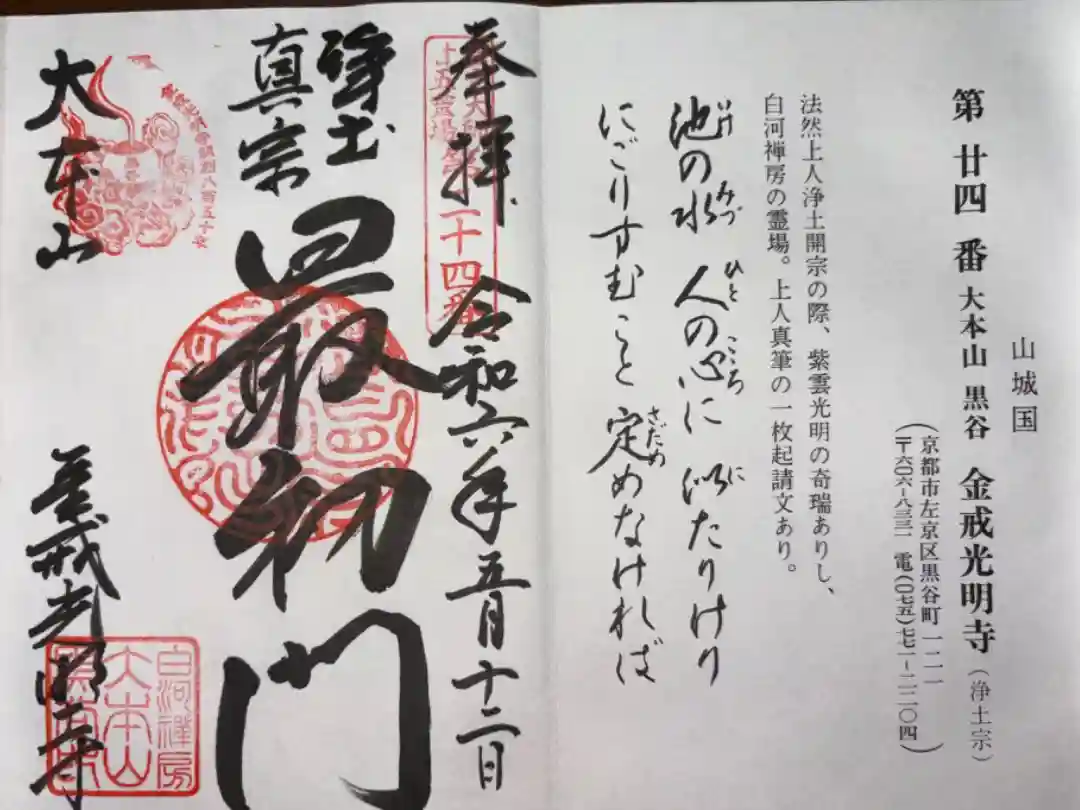 山城国
第廿四番 大本山 黒谷 金戒光明寺(浄土宗)
(京都市左京区黒谷町一二一
〒六〇六-八三三一 電(〇七五)七七一-二二〇四)
法然上人浄土開宗の際、紫雲光明の奇瑞ありし、
白河禅房の霊場。上人真筆の一枚起請文あり。
池の水 人の心に 似たりけり
いけ みづ ひと こころ に
にごりすむこと 定めなければ
さだめ
奉拝 令和六年五月十二日
二十四番
浄土
真宗
最初門
大本山
金戒光明寺
八百五十年
白河禅房
大本山